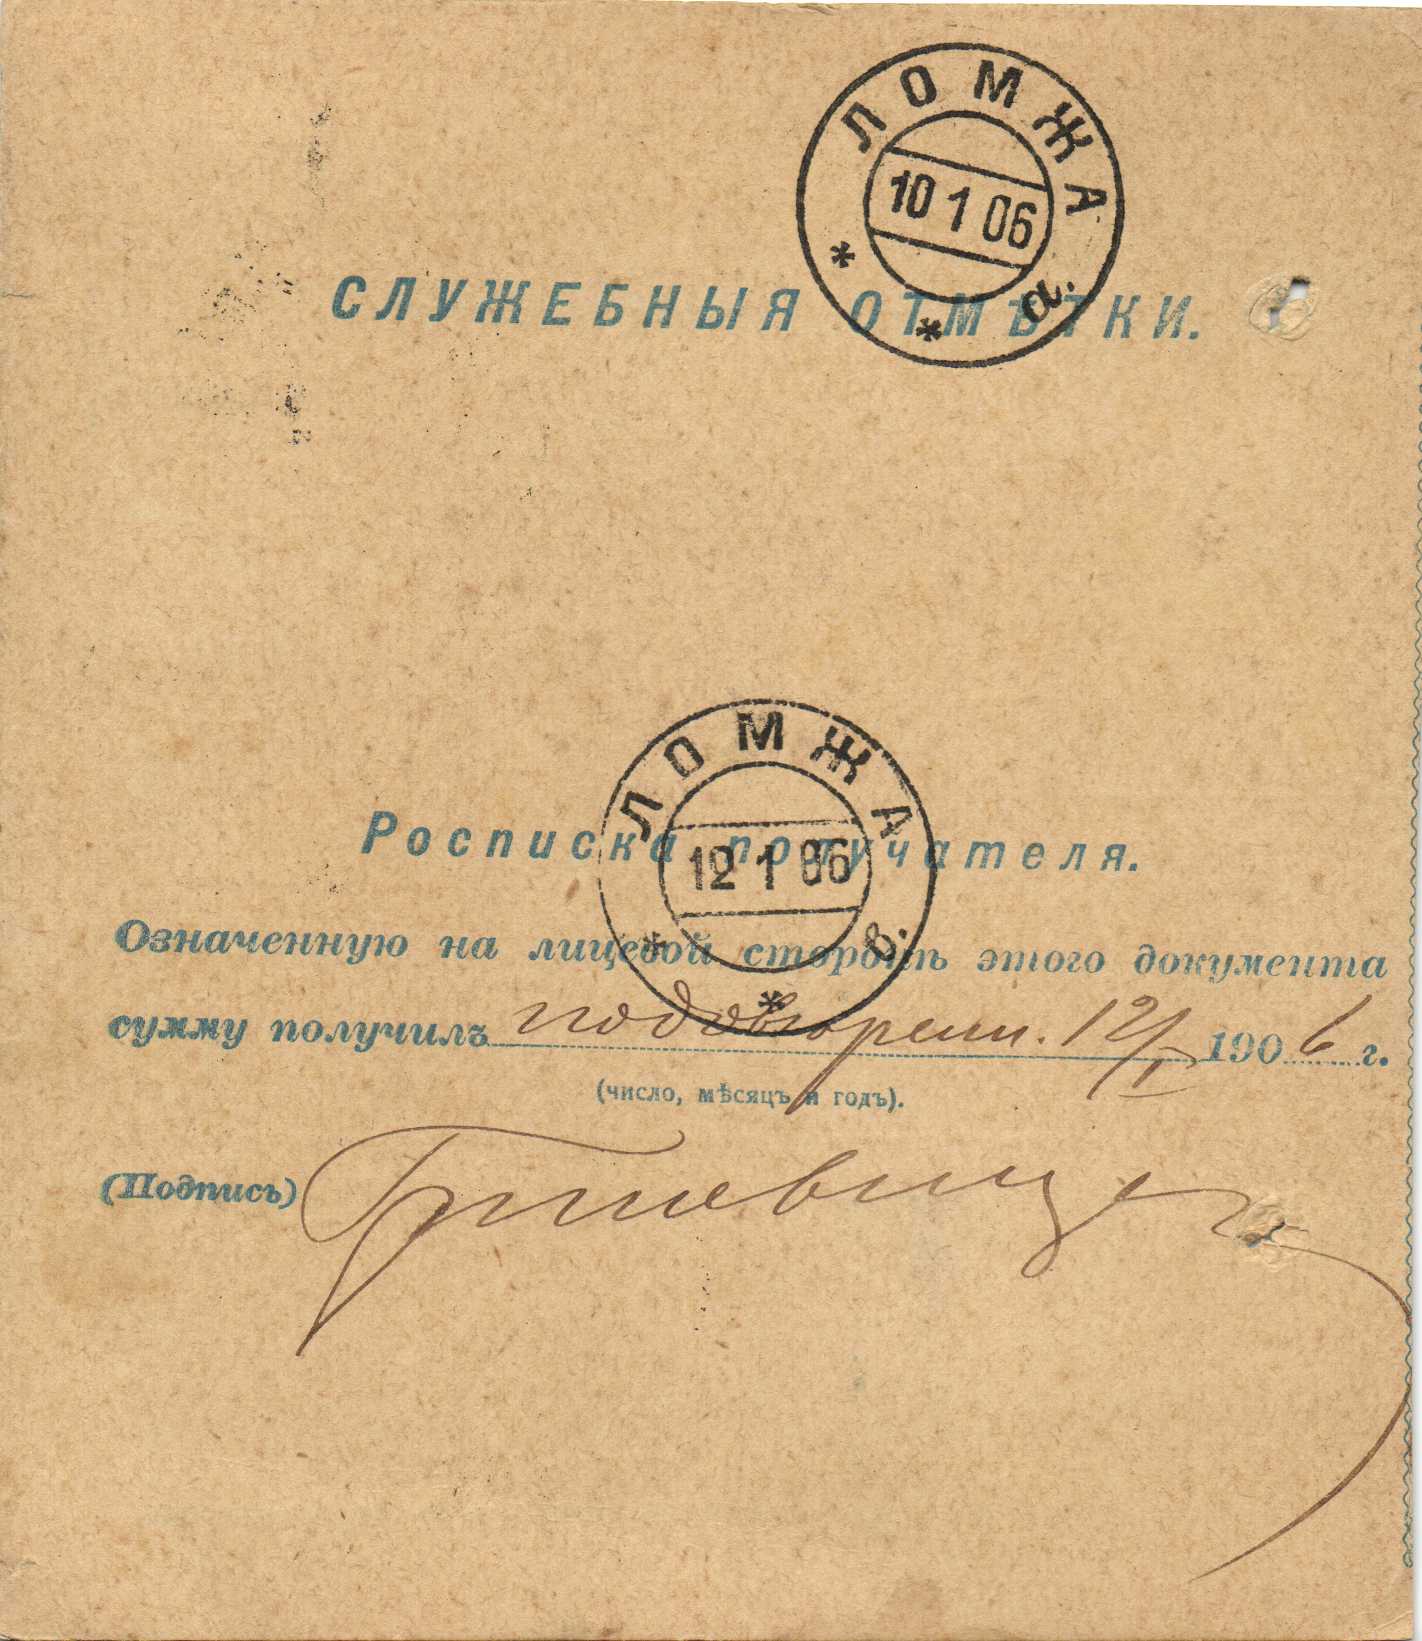 ЛОМЖА
10 1 06
* * а.
СЛУЖЕБНЫЯ ОТМѢТКИ.
ЛОМЖА
12 1 06
* * в.
Росписка получателя.
Означенную на лицевой сторонѣ этого документа
сумму получилъ по довѣрен. 12/I 1906 г.
(число, мѣсяцъ и годъ).
(Подпись)